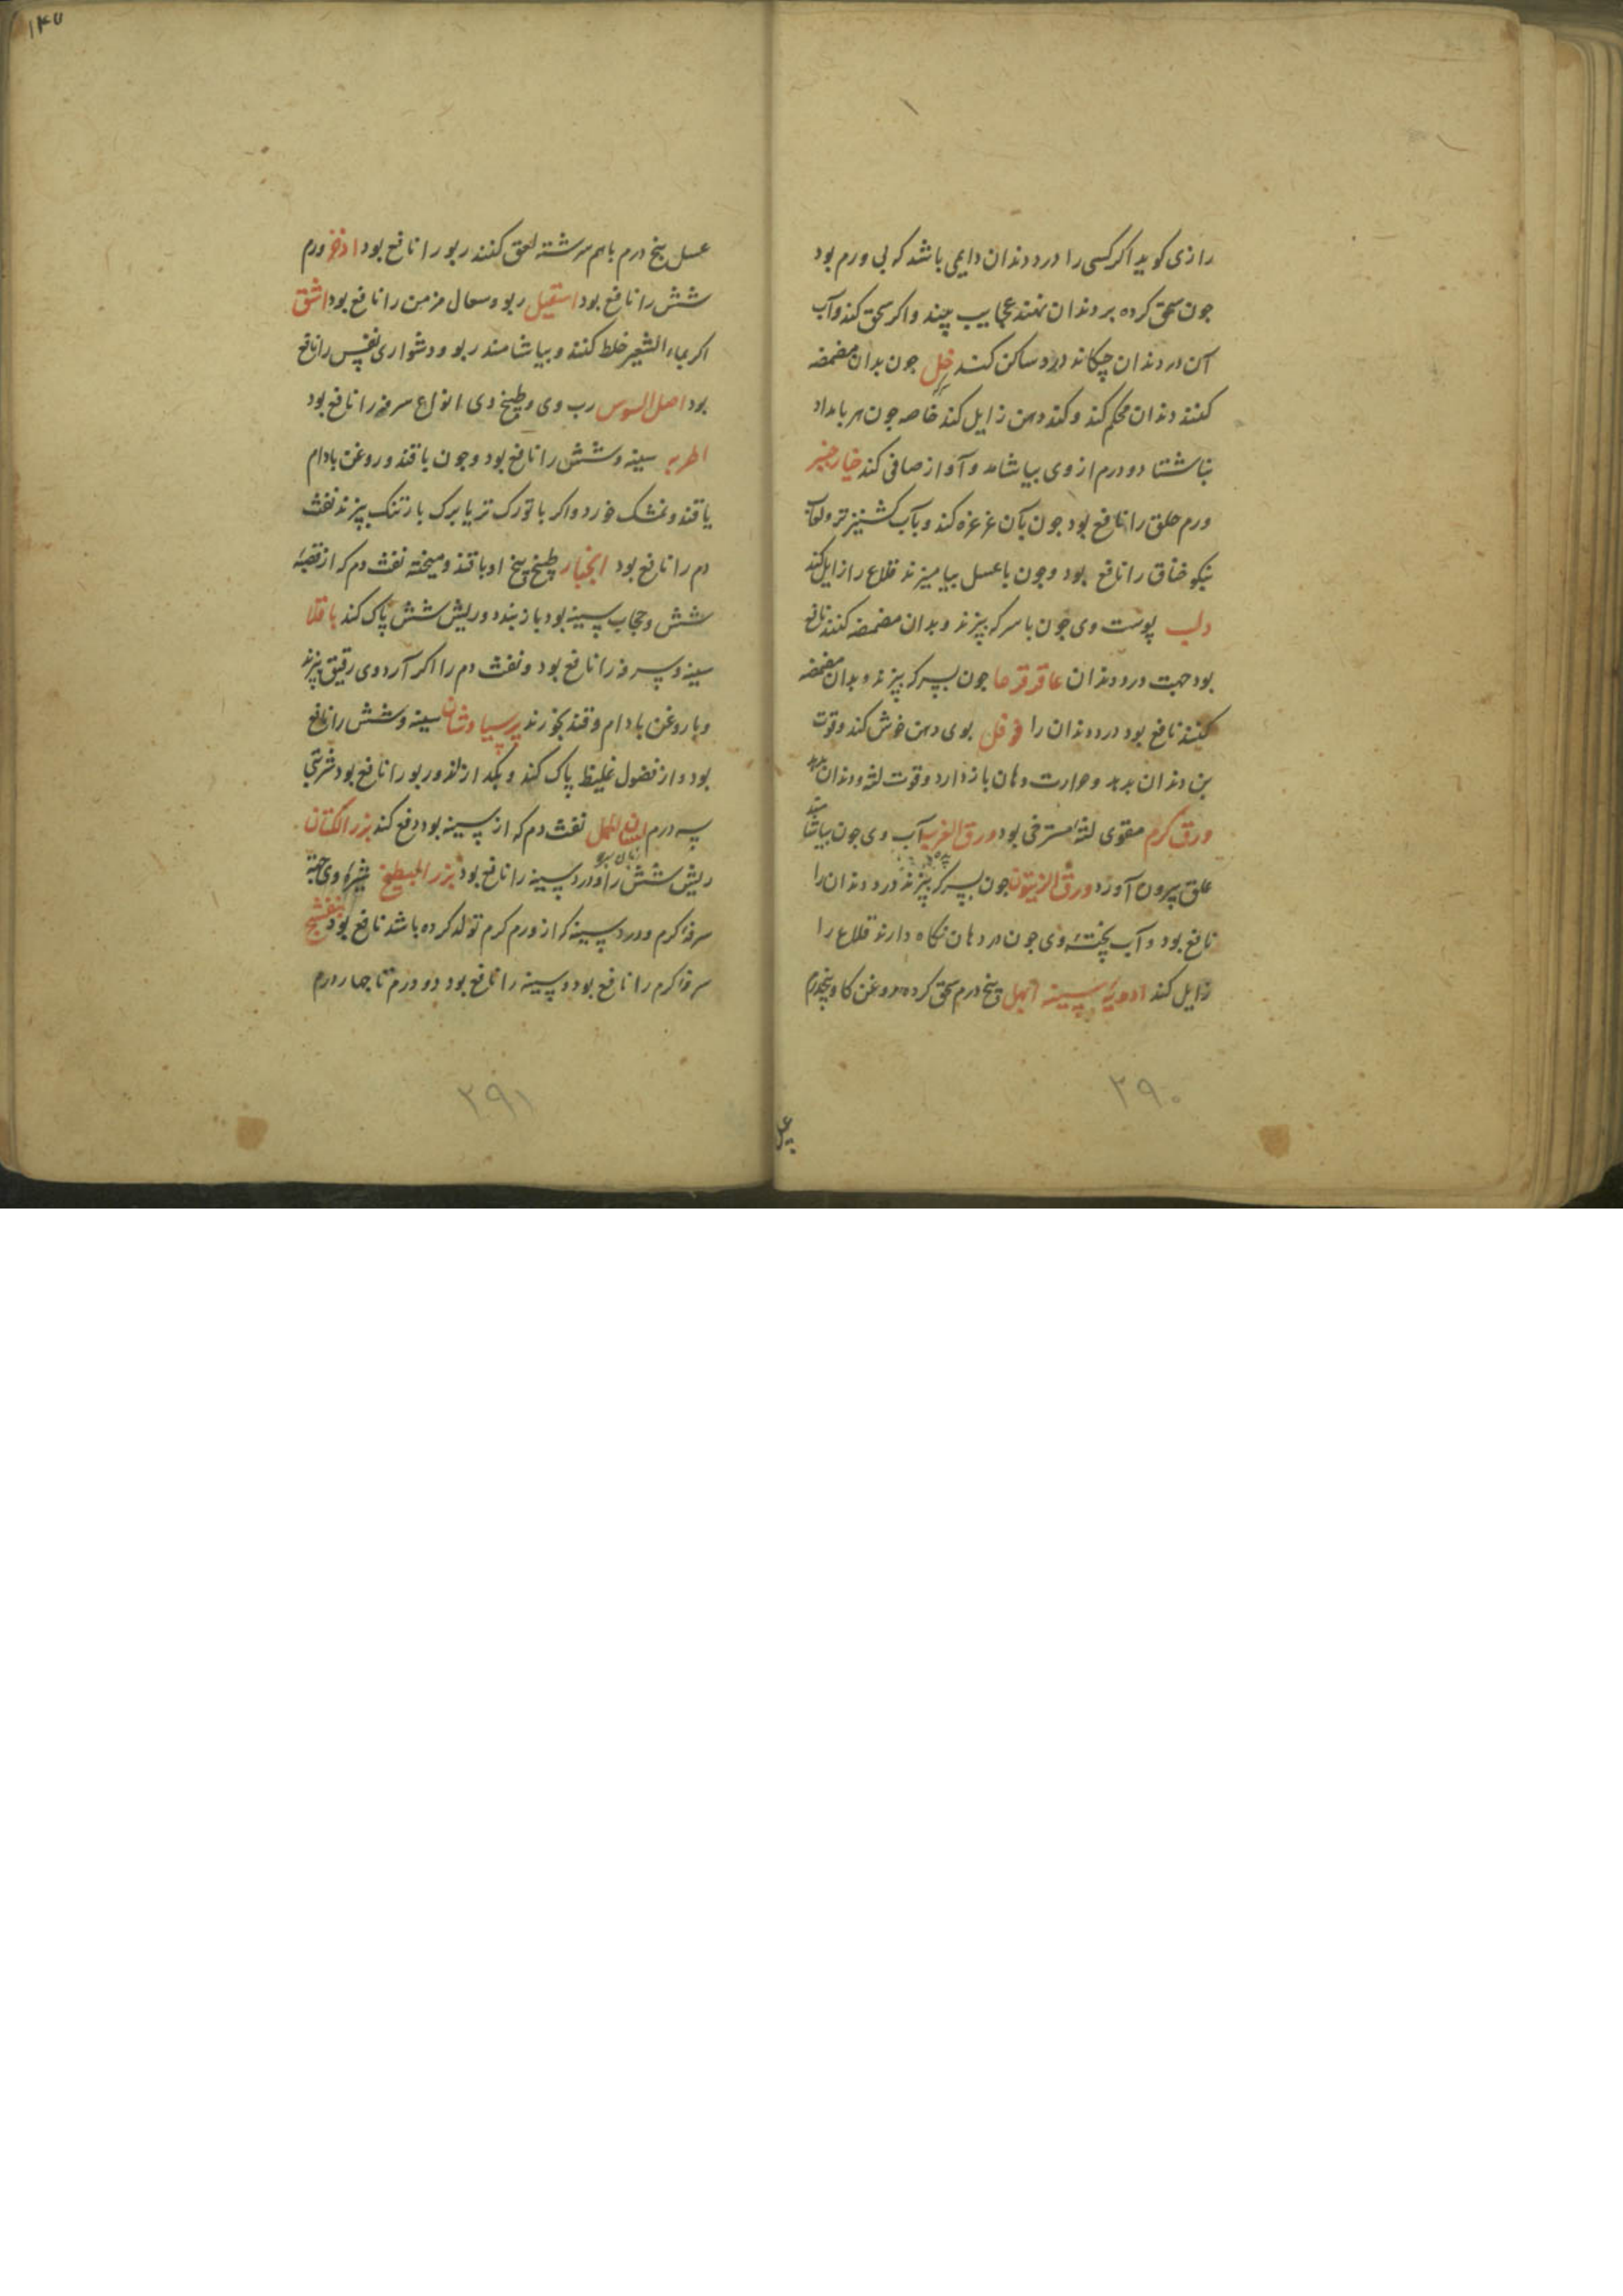 رازی کوید اکر کسی را درد دندان دایمی باشد که بی ورم بود
جون سحق کرده بر دندان نهند عجایب بیند و اکر سحق کند و آب
آن در دندان چکاند درد ساکن کند خل جون بدان مضمضه
کنند دندان محکم کند و کند دهن زایل کند خاصه جون هر بامداد
بناشتا دو درم از وی بیاشامد و آواز صافی کند خیارجنبر
ورم حلق را نافع بود جون بآن غرغره کند و بآب کشنیز تر و لعاب
خناق را نافع بود و جون با عسل بیامیزند قلاع را زایل کند
دلب پوست وی جون با سرکه بپزند و بدان مضمضه کنند نافع
بود جهت درد دندان عاقرقرحا جون بسرکه بپزند و بدان مضمضه
کنند نافع بود درد دندان را فوفل بوی دهن خوش کند و قوت
بن دندان بدهد و حرارت دهان بازدارد و قوت لثه و دندان بدهد
ورق کرم مقوی لثه مسترخی بود ورق الغرب آب وی جون بیاشامند
علق بیرون آورد ورق الزیتون جون بسرکه بپزند درد دندان را
نافع بود و آب پختهٔ وی جون در دهان نکاه دارند قلاع را
زایل کند ادویهٔ سینه ابهل پنج درم سحق کرده روغن کاو پنجدرم
۲۹۰
عسل
۱۴۷
عسل پنج درم باهم سرشته لعق کنند ربو را نافع بود اذخر ورم
شش را نافع بود اسقیل ربو و سعال مزمن را نافع بود اشق
اکر بماء الشعیر خلط کنند و بیاشامند ربو و دشواری نفس را نافع
بود اصل السوس رب وی و طبیخ وی انواع سرفه را نافع بود
اطریه سینه و شش را نافع بود و جون با قند و روغن بادام
یا قند و نمشک خورد و اکر با تورک تر یا برک بارتنک بپزند نفث
دم را نافع بود انجبار طبیخ بیخ او با قند و میخته نفث دم که از قصبهٔ
شش و حجاب سینه بود باز بندد و ریش شش پاک کند باقلا
سینه و سرفه را نافع بود و نفث دم را اکر آرد وی رقیق بپزند
و با روغن بادام و قند بخورند پرسیاوشان سینه و شش را نافع
بود و از فضول غلیظ پاک کند و ربو را نافع بود شربتی
سه درم نفث دم که از سینه بود دفع کند بزر الکتان
ریش شش را و درد سینه را نافع بود بزر البطیخ شیرهٔ وی جهة
سرفهٔ کرم و درد سینه که از ورم کرم تولد کرده باشد نافع بود بنفشج
سرفهٔ کرم را نافع بود و سینه را نافع بود دو درم تا جهار درم
۲۹۱